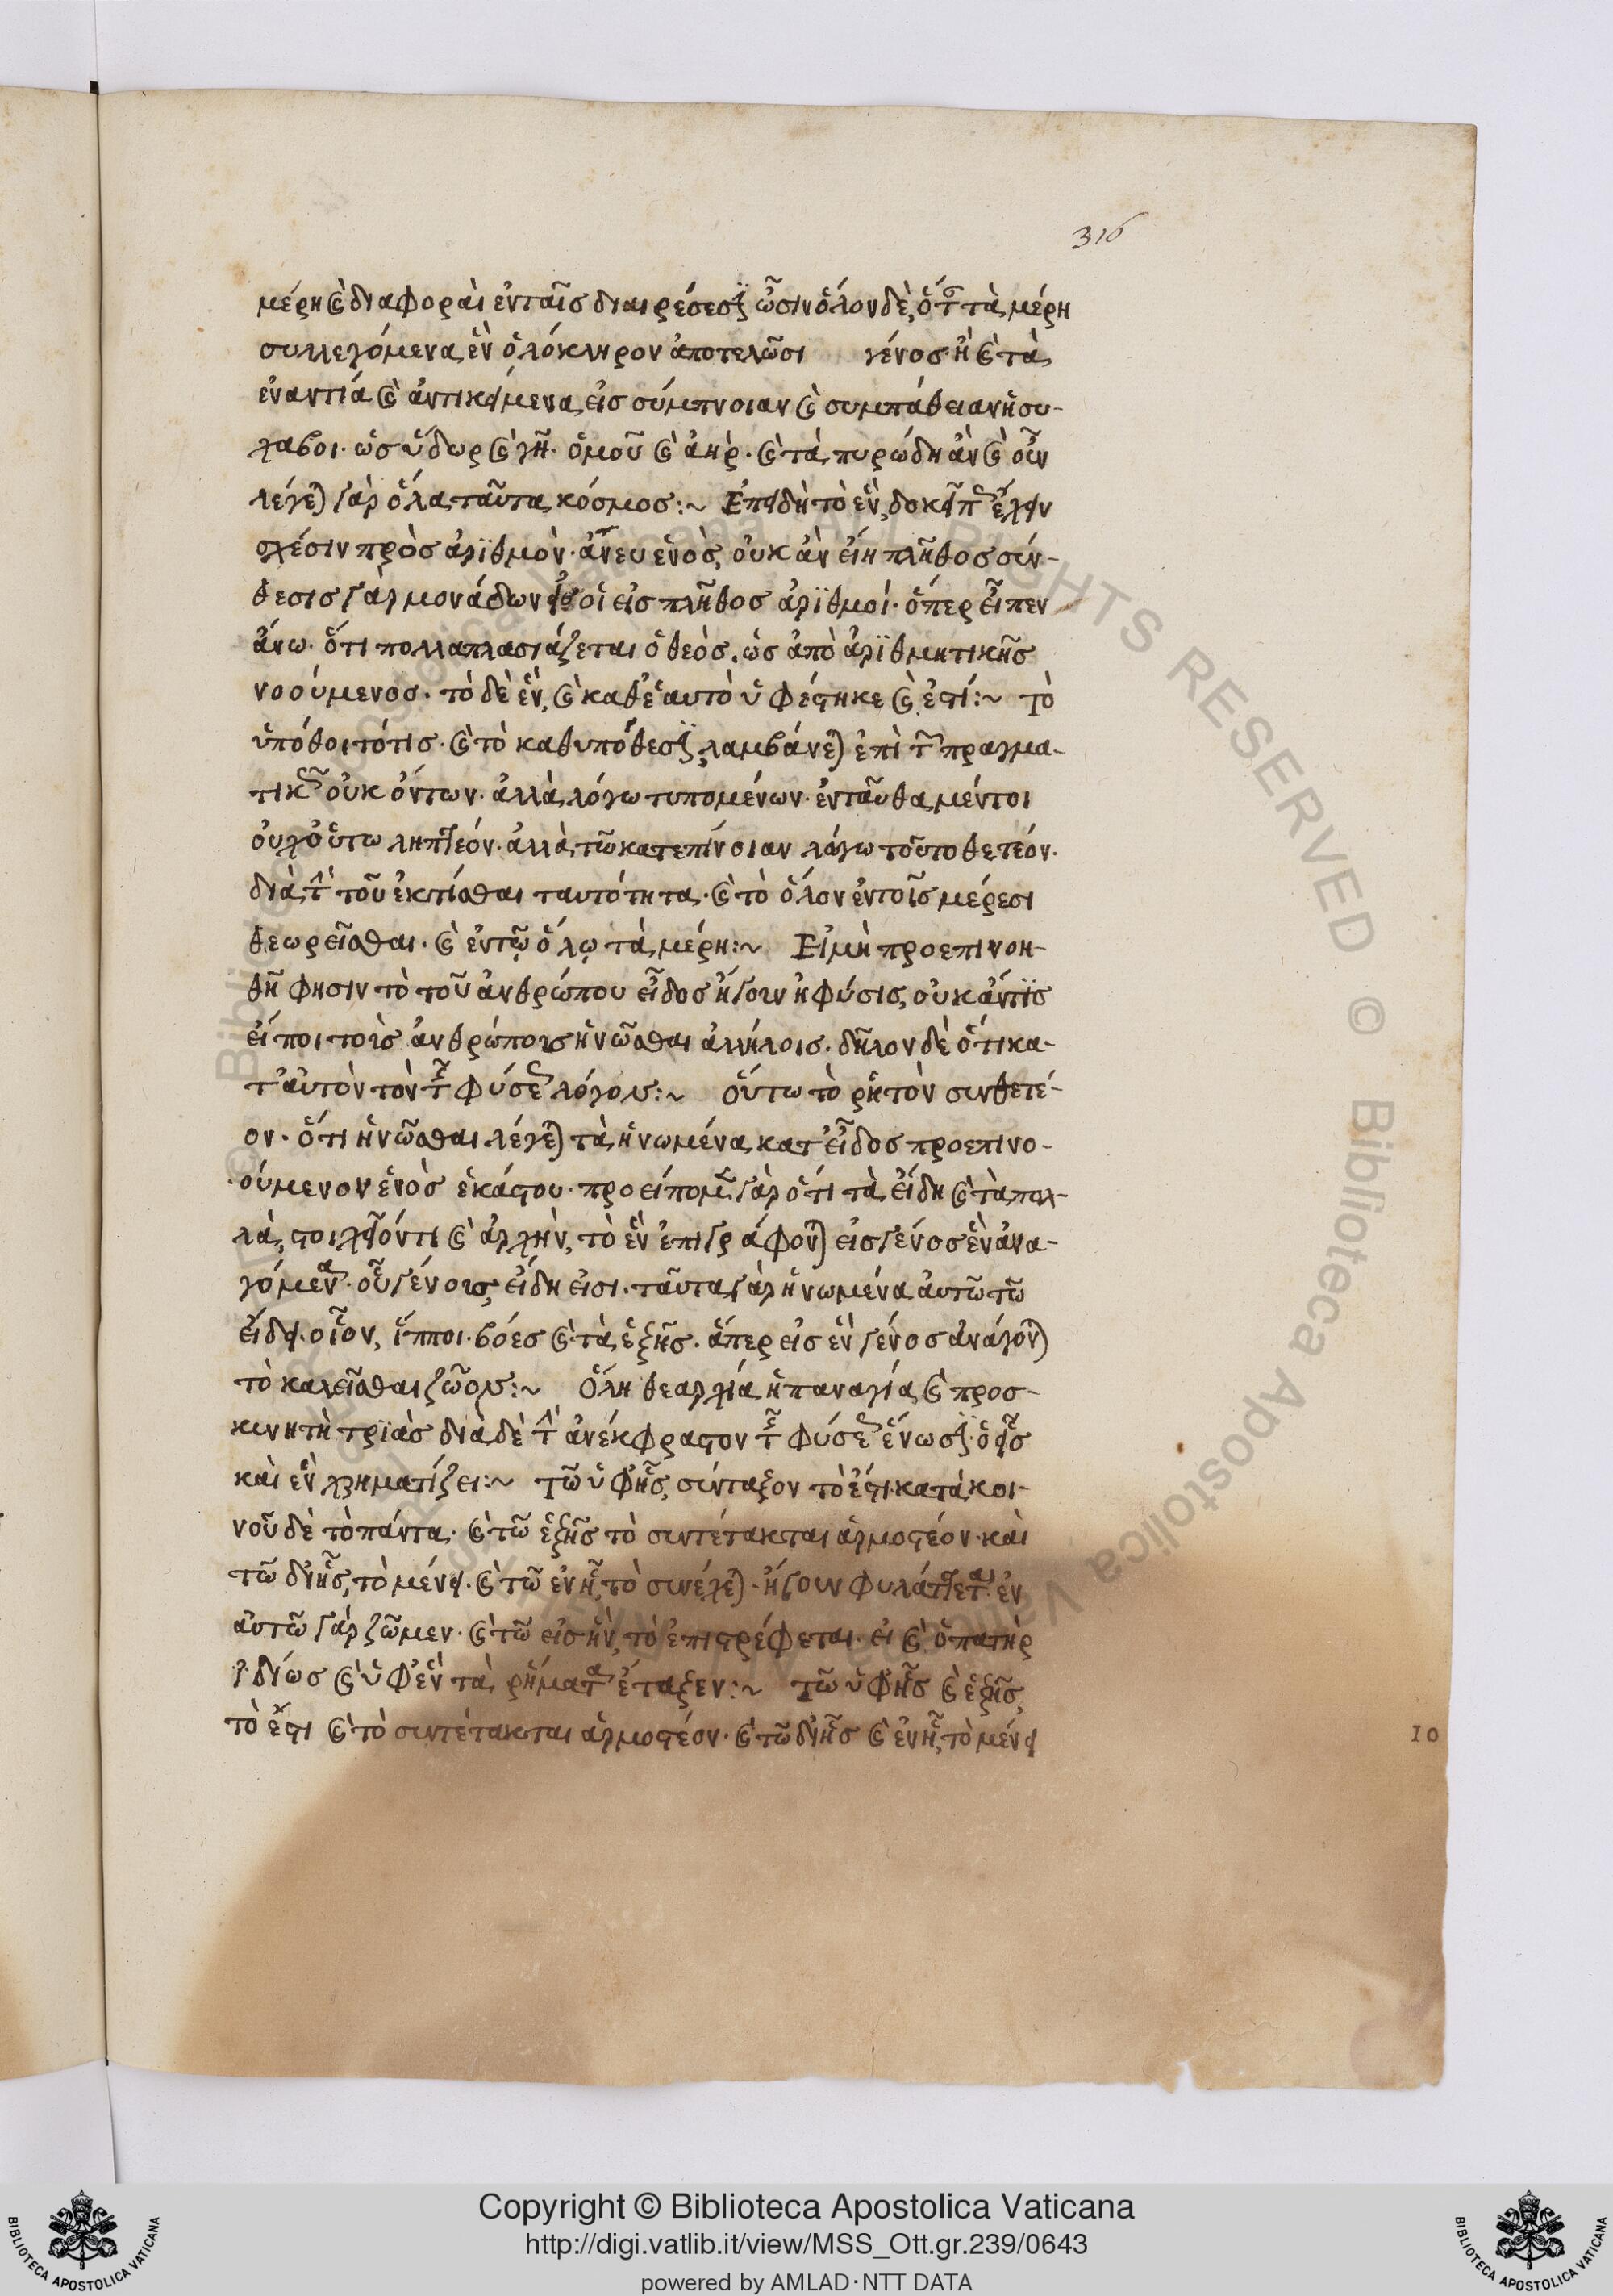 316
μέρη καὶ διαφοραὶ ἐν ταῖς διαιρέσεσιν ὦσιν ὅλον δὲ, ὅταν τὰ μέρη
συλλεγόμενα, ἓν ὁλόκληρον ἀποτελῶσι γένος ἢ καὶ τὰ
ἐναντία καὶ ἀντικείμενα, εἰς σύμπνοιαν καὶ συμπάθειαν ἡ συ-
λαβοι· ὡς ὕδωρ καὶ γῆ· ὁμοῦ καὶ ἀὴρ· καὶ τὰ πυρώδη ἀν καὶ οὖν
λέγεται γὰρ ὅλα ταῦτα κόσμος:~ Ἐπειδὴ τὸ ἓν, δοκεῖ πως ἔχειν
σχέσιν πρὸς ἀριθμὸν· ἄνευ ἑνὸς, οὐκ ἂν εἴη πλῆθος σύν-
θεσις γὰρ μονάδων οἱ εἰς πλῆθος ἀριθμοί· ὅπερ εἶπεν
ἄνω· ὅτι πολλαπλασιάζεται ὁ θεὸς, ὡς ἀπὸ ἀριθμητικῆς
νοούμενος· τὸ δὲ ἓν, καὶ καθ' ἑαυτὸ ὑφέστηκε καὶ ἐστί:~ τὸ
ὑπόθοιτό τις· καὶ τὸ καθ' ὑπόθεσιν, λαμβάνεται ἐπὶ τῶν πραγμα-
τικῶς οὐκ ὄντων· ἀλλὰ λόγω τυπομένων· ἐνταῦθα μέντοι
οὐχ οὕτω ληπτέον· ἀλλὰ τῶ κατ' ἐπίνοιαν λόγω τοῦτο θετέον·
διὰ τὴν τοῦ ἐκτίσθαι ταυτότητα· καὶ τὸ ὅλον ἐν τοῖς μέρεσι
θεωρεῖσθαι· καὶ ἐν τῷ ὅλῳ τὰ μέρη:~ Εἰ μὴ προεπινοη-
θῆ φησιν τὸ τοῦ ἀνθρώπου εἶδος ἤγουν ἡ φύσις, οὐκ ἄν τις
εἴποι τοῖς ἀνθρώποις ἡνῶσθαι ἀλλήλοις· δῆλον δὲ ὅτι κα-
τ' αὐτὸν τὸν τῆς φύσεως λόγον:~ οὕτω τὸ ῥητὸν συνθετέ-
ον· ὅτι ἡνῶσθαι λέγεται τὰ ἡνωμένα, κατ' εἶδος προεπινο-
ούμενον ἑνὸς ἑκάστου· προείπομεν γὰρ ὅτι τὰ εἴδη καὶ τὰ πολ-
λὰ, στοιχεῖόν τι καὶ ἀρχὴν, τὸ ἓν ἐπιγράφονται εἰς γένος ἓν ἀνα-
γόμενα· οὗ γένους, εἴδη εἰσι· ταῦτα γὰρ ἡνωμένα αὐτῶ τῶ
εἴδει· οἷον, ἵπποι· βόες καὶ τὰ ἑξῆς· ἅπερ εἰς ἓν γένος ἀνάγονται
τὸ καλεῖσθαι ζῶον:~ Ὅλη θεαρχία, ἡ παναγία καὶ προσ-
κυνητὴ τριὰς διὰ δὲ τὴν ἀνέκφραστον τῆς φύσεως ἕνωσιν
καὶ ἓν χρηματίζει:~ τῶ ὑφ' ἧς, σύνταξον τὸ ἔστι κατὰ κοι-
νοῦ δὲ τὸ πάντα· καὶ τῶ ἐξ ἧς τὸ συντέτακται ἁρμοστέον· καὶ
τῶ δι' ἧς, τὸ μένει· καὶ τῶ ἐν ἧ, τὸ συνέχεται· ἤγουν φυλάττεται· ἐν
αὐτῶ γὰρ ζῶμεν· καὶ τῶ εἰς ἣν, τὸ ἐπιστρέφεται· εἰ καὶ ὁ πατὴρ
ἰδίως καὶ ὑφ' ἓν τὰ ῥήματα ἔταξεν:~ τῶ ὑφ' ἧς καὶ ἐξ ἧς,
τὸ ἔστι καὶ τὸ συντέτακται ἁρμοστέον· καὶ τῶ δι' ἧς καὶ ἐν ἧ, τὸ μένει
10
Copyright © Biblioteca Apostolica Vaticana
http://digi.vatlib.it/view/MSS_Ott.gr.239/0643
powered by AMLAD·NTT DATA